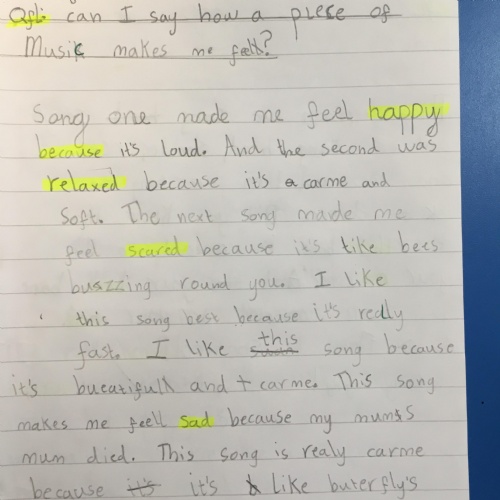 Qfl: can I say how a piece of
Musik makes me feelt?
Song one made me feel happy
because it's loud. And the second was
relaxed because it's a carme and
Soft. The next song made me
feel scared because it's like bees
buszzing round you. I like
this song best because it's really
fast. I like this song because
it's bueatifull and + carme. This song
makes me feell sad because my mums
mum died. This song is realy carme
because it's it's like buterfly's